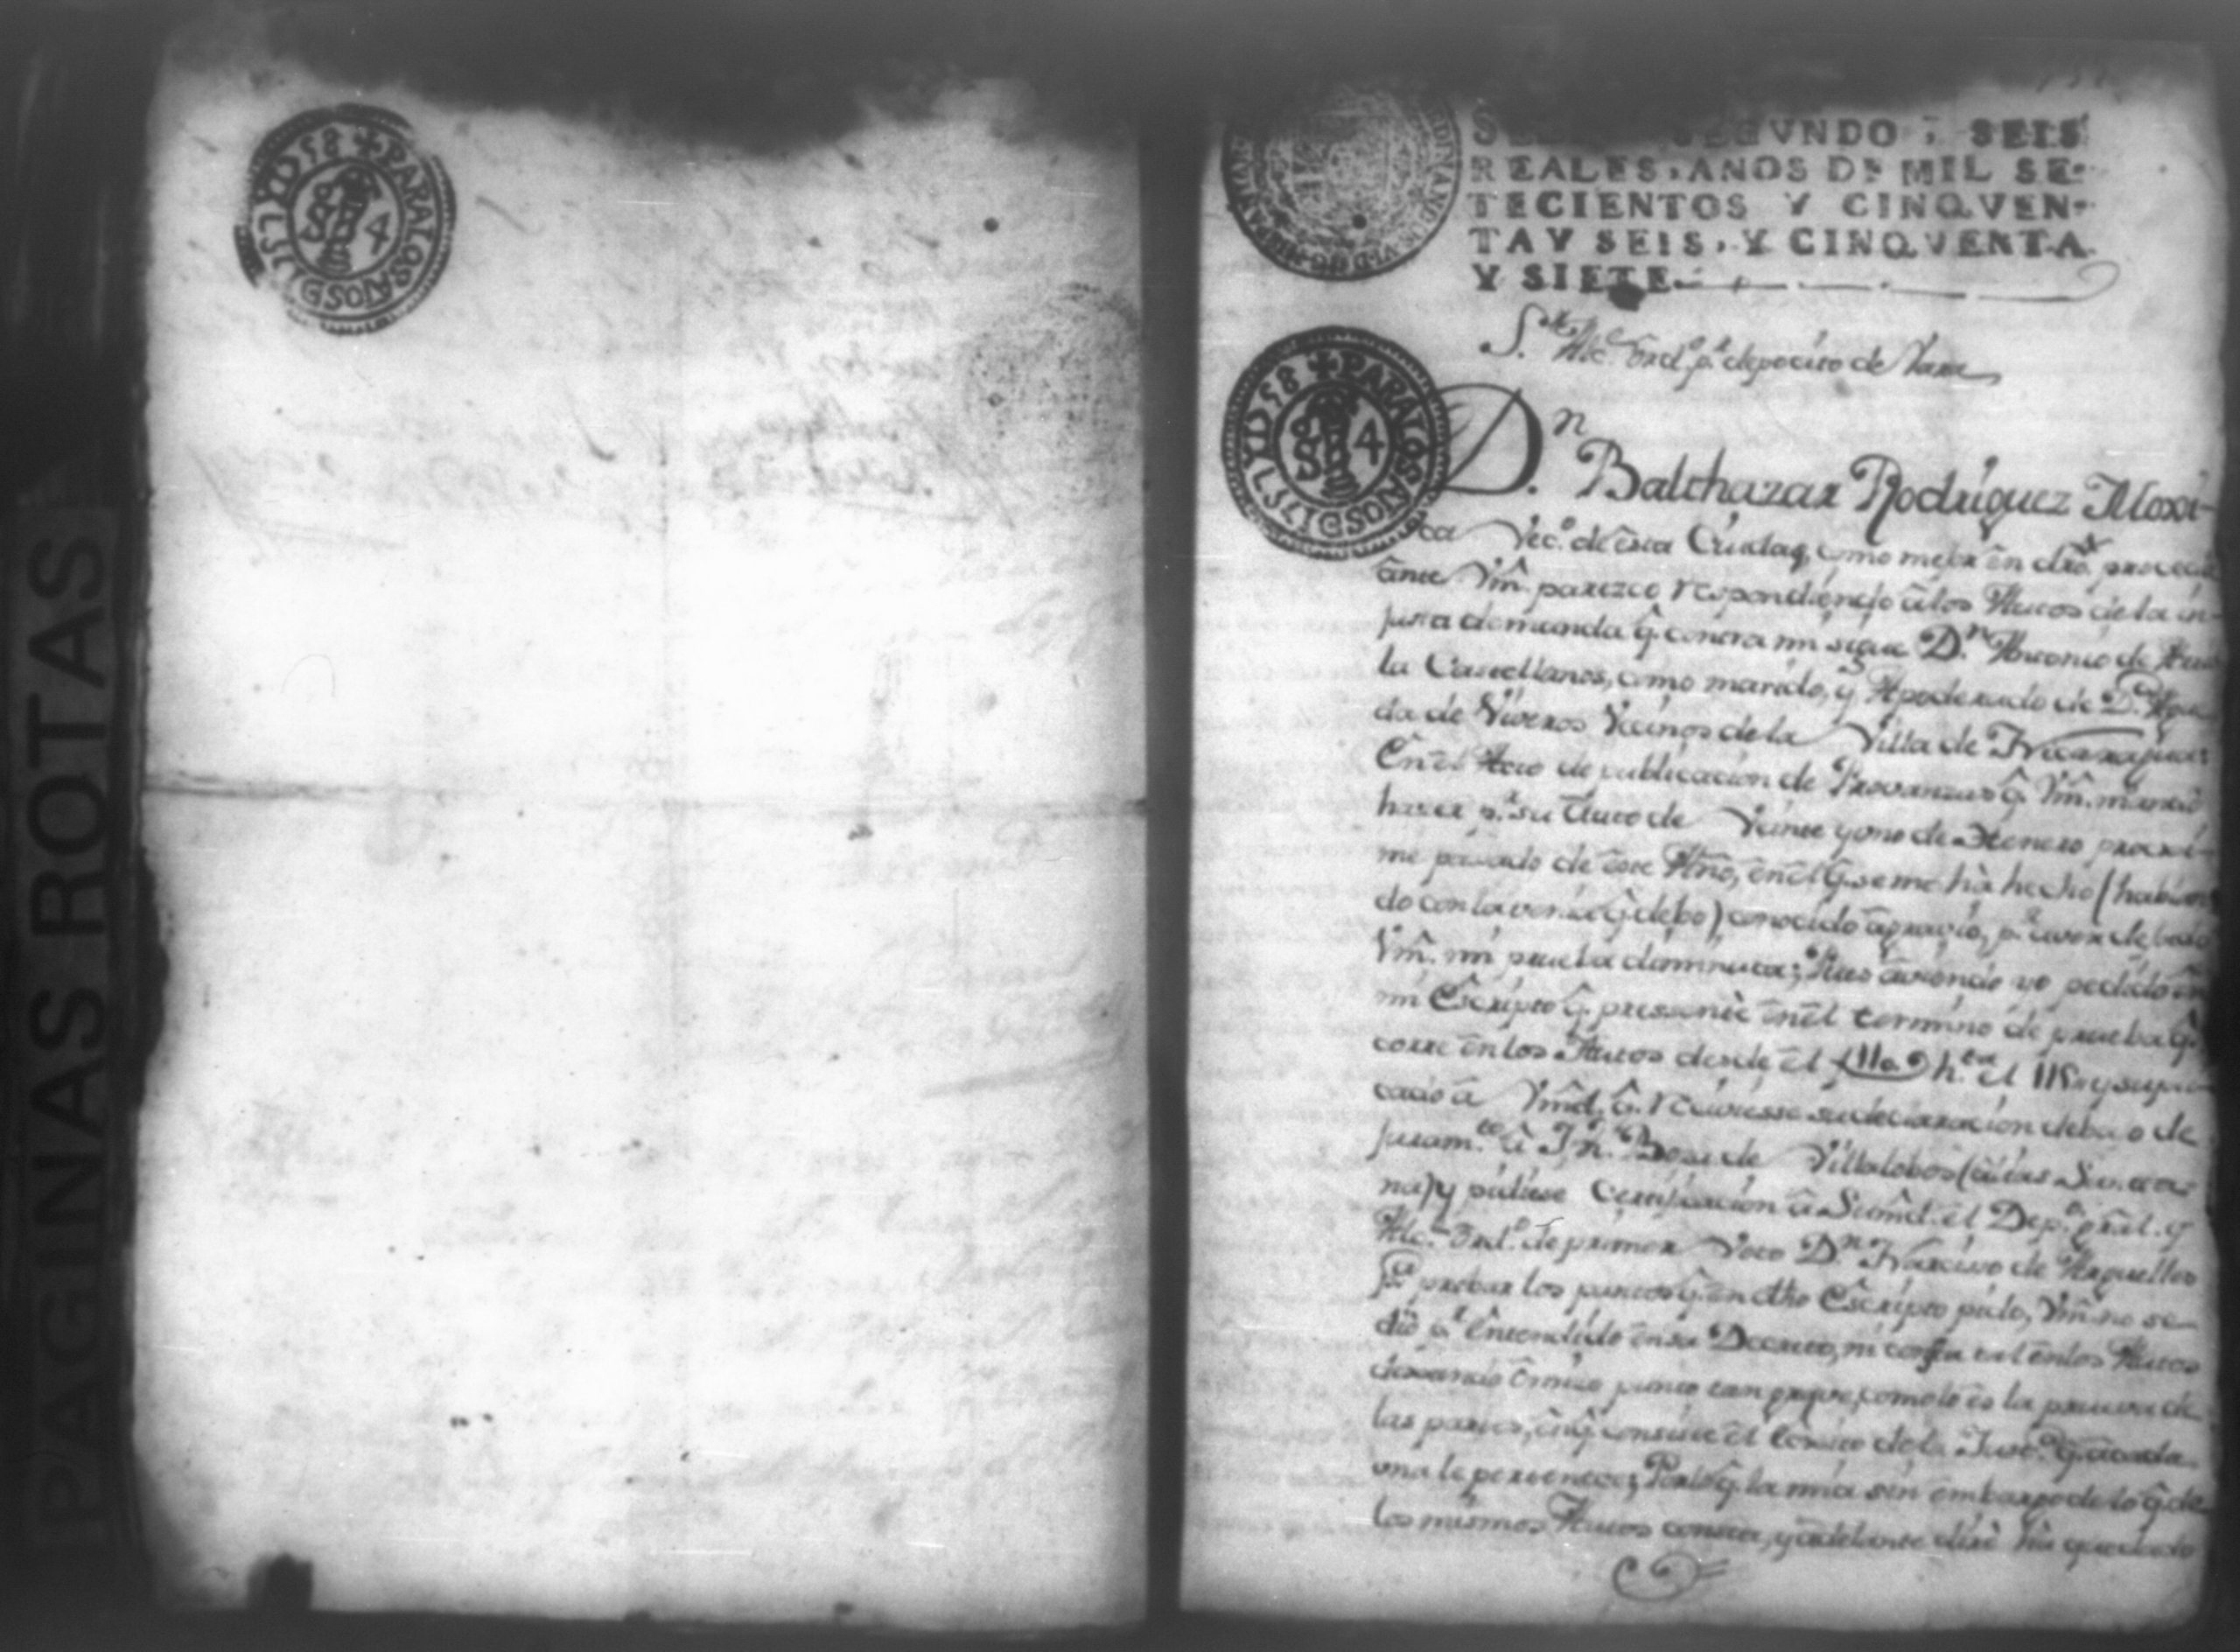 PAGINAS ROTAS
✠ PARA LOS AÑOS D 1757 Y D 58
4
SEGVNDO, SEIS
REALES, AÑOS DE MIL SE-
TECIENTOS Y CINQVEN-
TA Y SEIS, Y CINQVENTA
Y SIETE
✠ PARA LOS AÑOS D 1757 Y D 58
4
S.or Alc.e ord.o p.r depocito de Vara
D.n Balthazar Rodriguez Moxi-
ca Vec.o de esta Ciudad, como mejor en dro. proceda
ante Vm̃. parezco respondiendo â los Autos de la in-
justa demanda q̃. contra mi sigue D.n Antonio de
la Castellanos, como marido, y Apoderado de D.a
da de Viveros Vecinos de la Villa de
En el Auto de publicacion de Provanzas q̃. Vm̃. mandó
hacer p.r su Auto de Veinte y uno de Henero proxi-
mo pasado de este Año, en el q̃. se me hà hecho (hablan
do con la venia q̃. debo) conocido agravio, p.r aver dejado
Vm̃. mi prueba diminuta; Pues aviendo yo pedido en
mi Escripto q̃. pressentè en el termino de prueba q̃.
corre en los Autos desde el f 110 h.ta el 115 y supli-
cado â Vmd. q̃. reciviesse su declaracion debajo de
juram.to â Jph. de Villalobos (alias
na) y pidiese Certificacion â Sumd. el Dep.o gral. y
Alc.e ord.o de primer Voto D.n Narciso de Arguelles
p.a probar los puntos q̃. en dho Escripto pido, Vm̃. no se
dió p.r entendido en su Decreto, ni consta tal en los Autos
dexando omiso punto tan grave, como lo es la prueva de
las partes, en q̃. consiste el de la Just.a q̃. a cada
una le pertenece; Por lo q̃. la mia sin embargo de lo q̃. de
los mismos Autos consta, y adelante dirè hà quedado